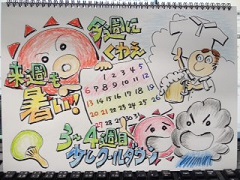 今週に
くわえ
来週も
暑い!!
1 2 3 4 5
6 7 8 9 10 11 12
13 14 15 16 17 18 19
20 21 22 23 24 25 26
3〜4週目
少しクールダウン